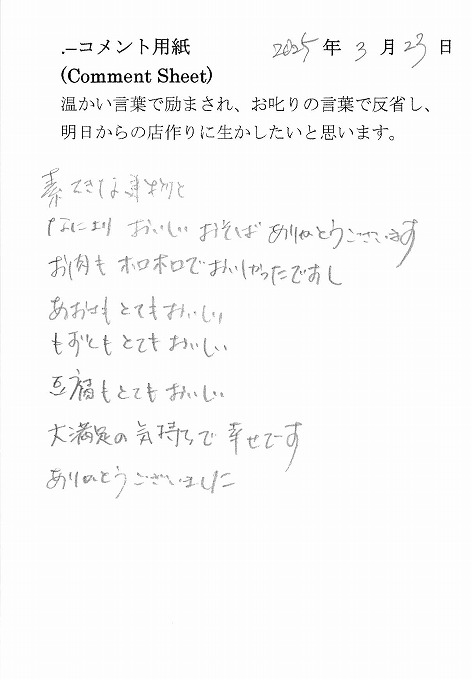 .–コメント用紙 2025年 3月 23日
(Comment Sheet)
温かい言葉で励まされ、お叱りの言葉で反省し、
明日からの店作りに生かしたいと思います。
素てきな建物と
なにより おいしい おそば ありがとうございます
お肉も ホロホロで おいしかったですし
あおさも とても おいしい
もずくも とても おいしい
豆腐も とても おいしい
大満足の 気持ちで 幸せです
ありがとうございました